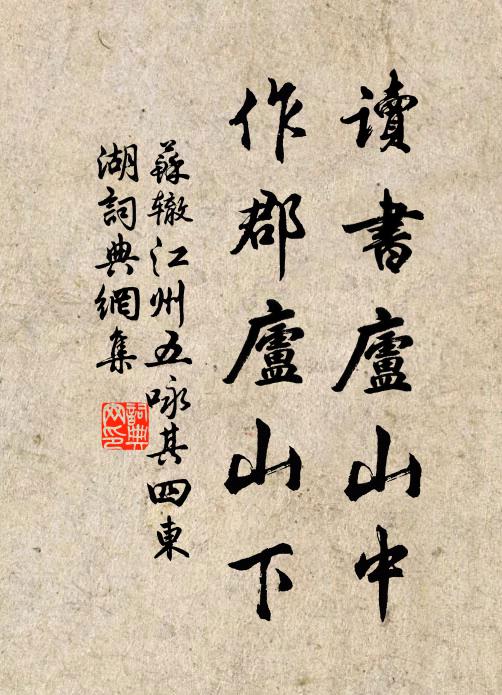 讀書廬山中
作郡廬山下
蘇辙江州五咏其四東
湖詞典網集
詞典
网印